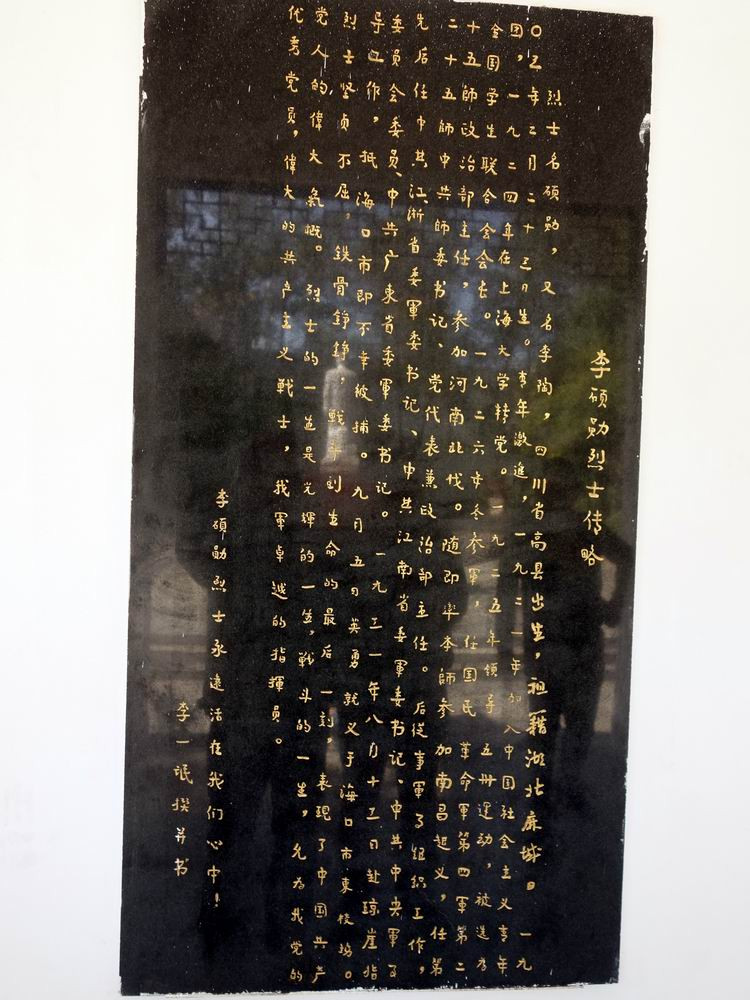 李硕勋烈士传略
烈士名硕勋，又名李陶，四川省高县出生，祖籍湖北麻城。一九
〇三年二月二十三日生。青年激進，一九二一年加入中国社会主义青年
团，一九二四年在上海大学转党。一九二五年领导五卅運动，被选为
全国学生联合会会长。一九二六年冬参軍，任国民革命軍第四軍第二
十五師政治部主任，参加河南北伐。随即率本師参加南昌起义，任第
二十五師中共師委书记、党代表兼政治部主任。后従事軍事组织工作，
先后任中共江浙省委軍委书记、中共江南省委軍委书记、中共中央軍事
委员会委员、中共广東省委軍委书记。一九三一年八月十三日赴琼崖指
导工作，抵海口市即不幸被捕。九月五日英勇就义于海口市東校場。
烈士坚贞不屈，鉄骨錚錚，戦斗到生命的最后一刻，表現了中国共产
党人的偉大氣概。烈士的一生是光輝的一生，戦斗的一生，允为我党的
优秀党员，偉大的共产主义戦士，我軍卓越的指揮员。
李碩勋烈士永遠活在我们心中！
李一氓撰并书